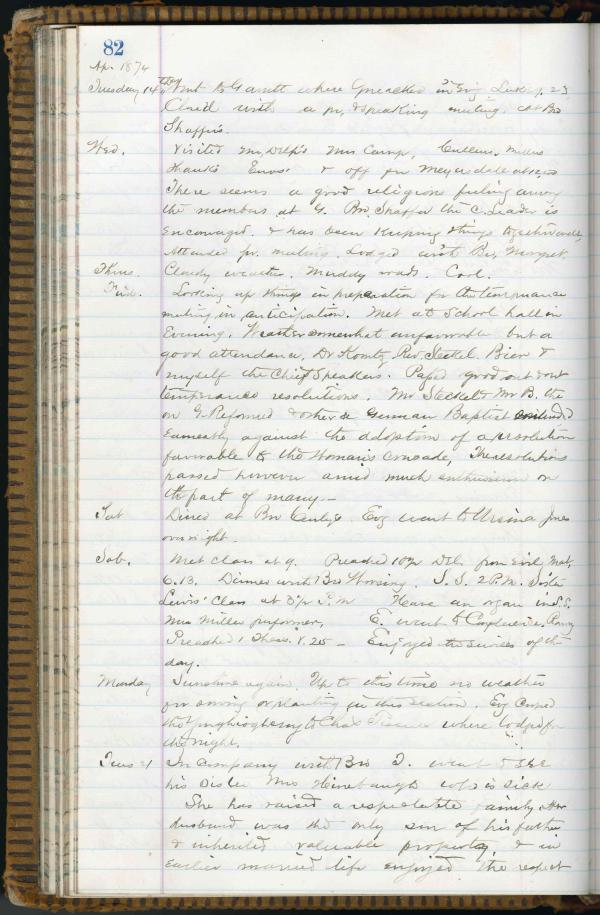 82
Ap. 1874
Tuesday 14th Went to Garrett where I preached in Evg Luke
Clos'd with a pr. & speaking meeting. At Bro
Shaffer's.
Wed. Visited Mr Delp's Mrs Camp,
& off for Meyersdale
There seems a good religion feeling among
the members at G. Bro Shaffer the C. Leader is
encouraged, & has been keeping things together
Attended pr. meeting. Lodged with Bro
Thurs. Cloudy weather. Muddy roads. Cool.
Frid. Looking up things in preparation for the temperance
meeting in anticipation. Met at School hall in
Evening. Weather somewhat unfavorable but a
good attendance. Dr Rev. Bier &
myself the Chief Speakers. Pass'd good out & out
temperance resolutions. Mr & Mr B. the
on G. Reformed & other a German Baptist
earnestly against the adoption of a resolution
favorable to the Woman's Crusade, The resolutions
passed however amid much enthusiasm on
the part of many.
Sat Dined at Bro Evg went to Ursina Jones
over night.
Sab. Met class at 9. Preached 10½ Del. from Evil, Mat.
6.13. Dinner with Bro S. S. 2 P.M. Sister
Lewis' Class at 3½ P.M Have an organ in S.S.
Mrs Miller performer. E. went to Confluence.
Preached 1 Thess. V. 25 - Enjoyed the services of the
day.
Monday Sunshine again. Up to this time no weather
for sowing or planting in this section. Evg Cross'd
the Youghiogheny to Chas where lodged for
the night.
Tues 21 In company with Bro I. went to see
his Sister Mrs Hinebaugh who is sick
She has raised a respectable family. Her
husband was the only son of his father
& inherited valuable property, & in
earlier married life enjoyed the respect